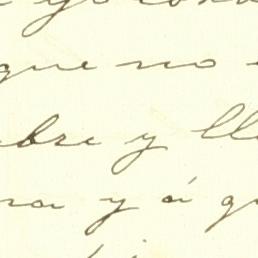 que no
bre y lle
ra y á qu